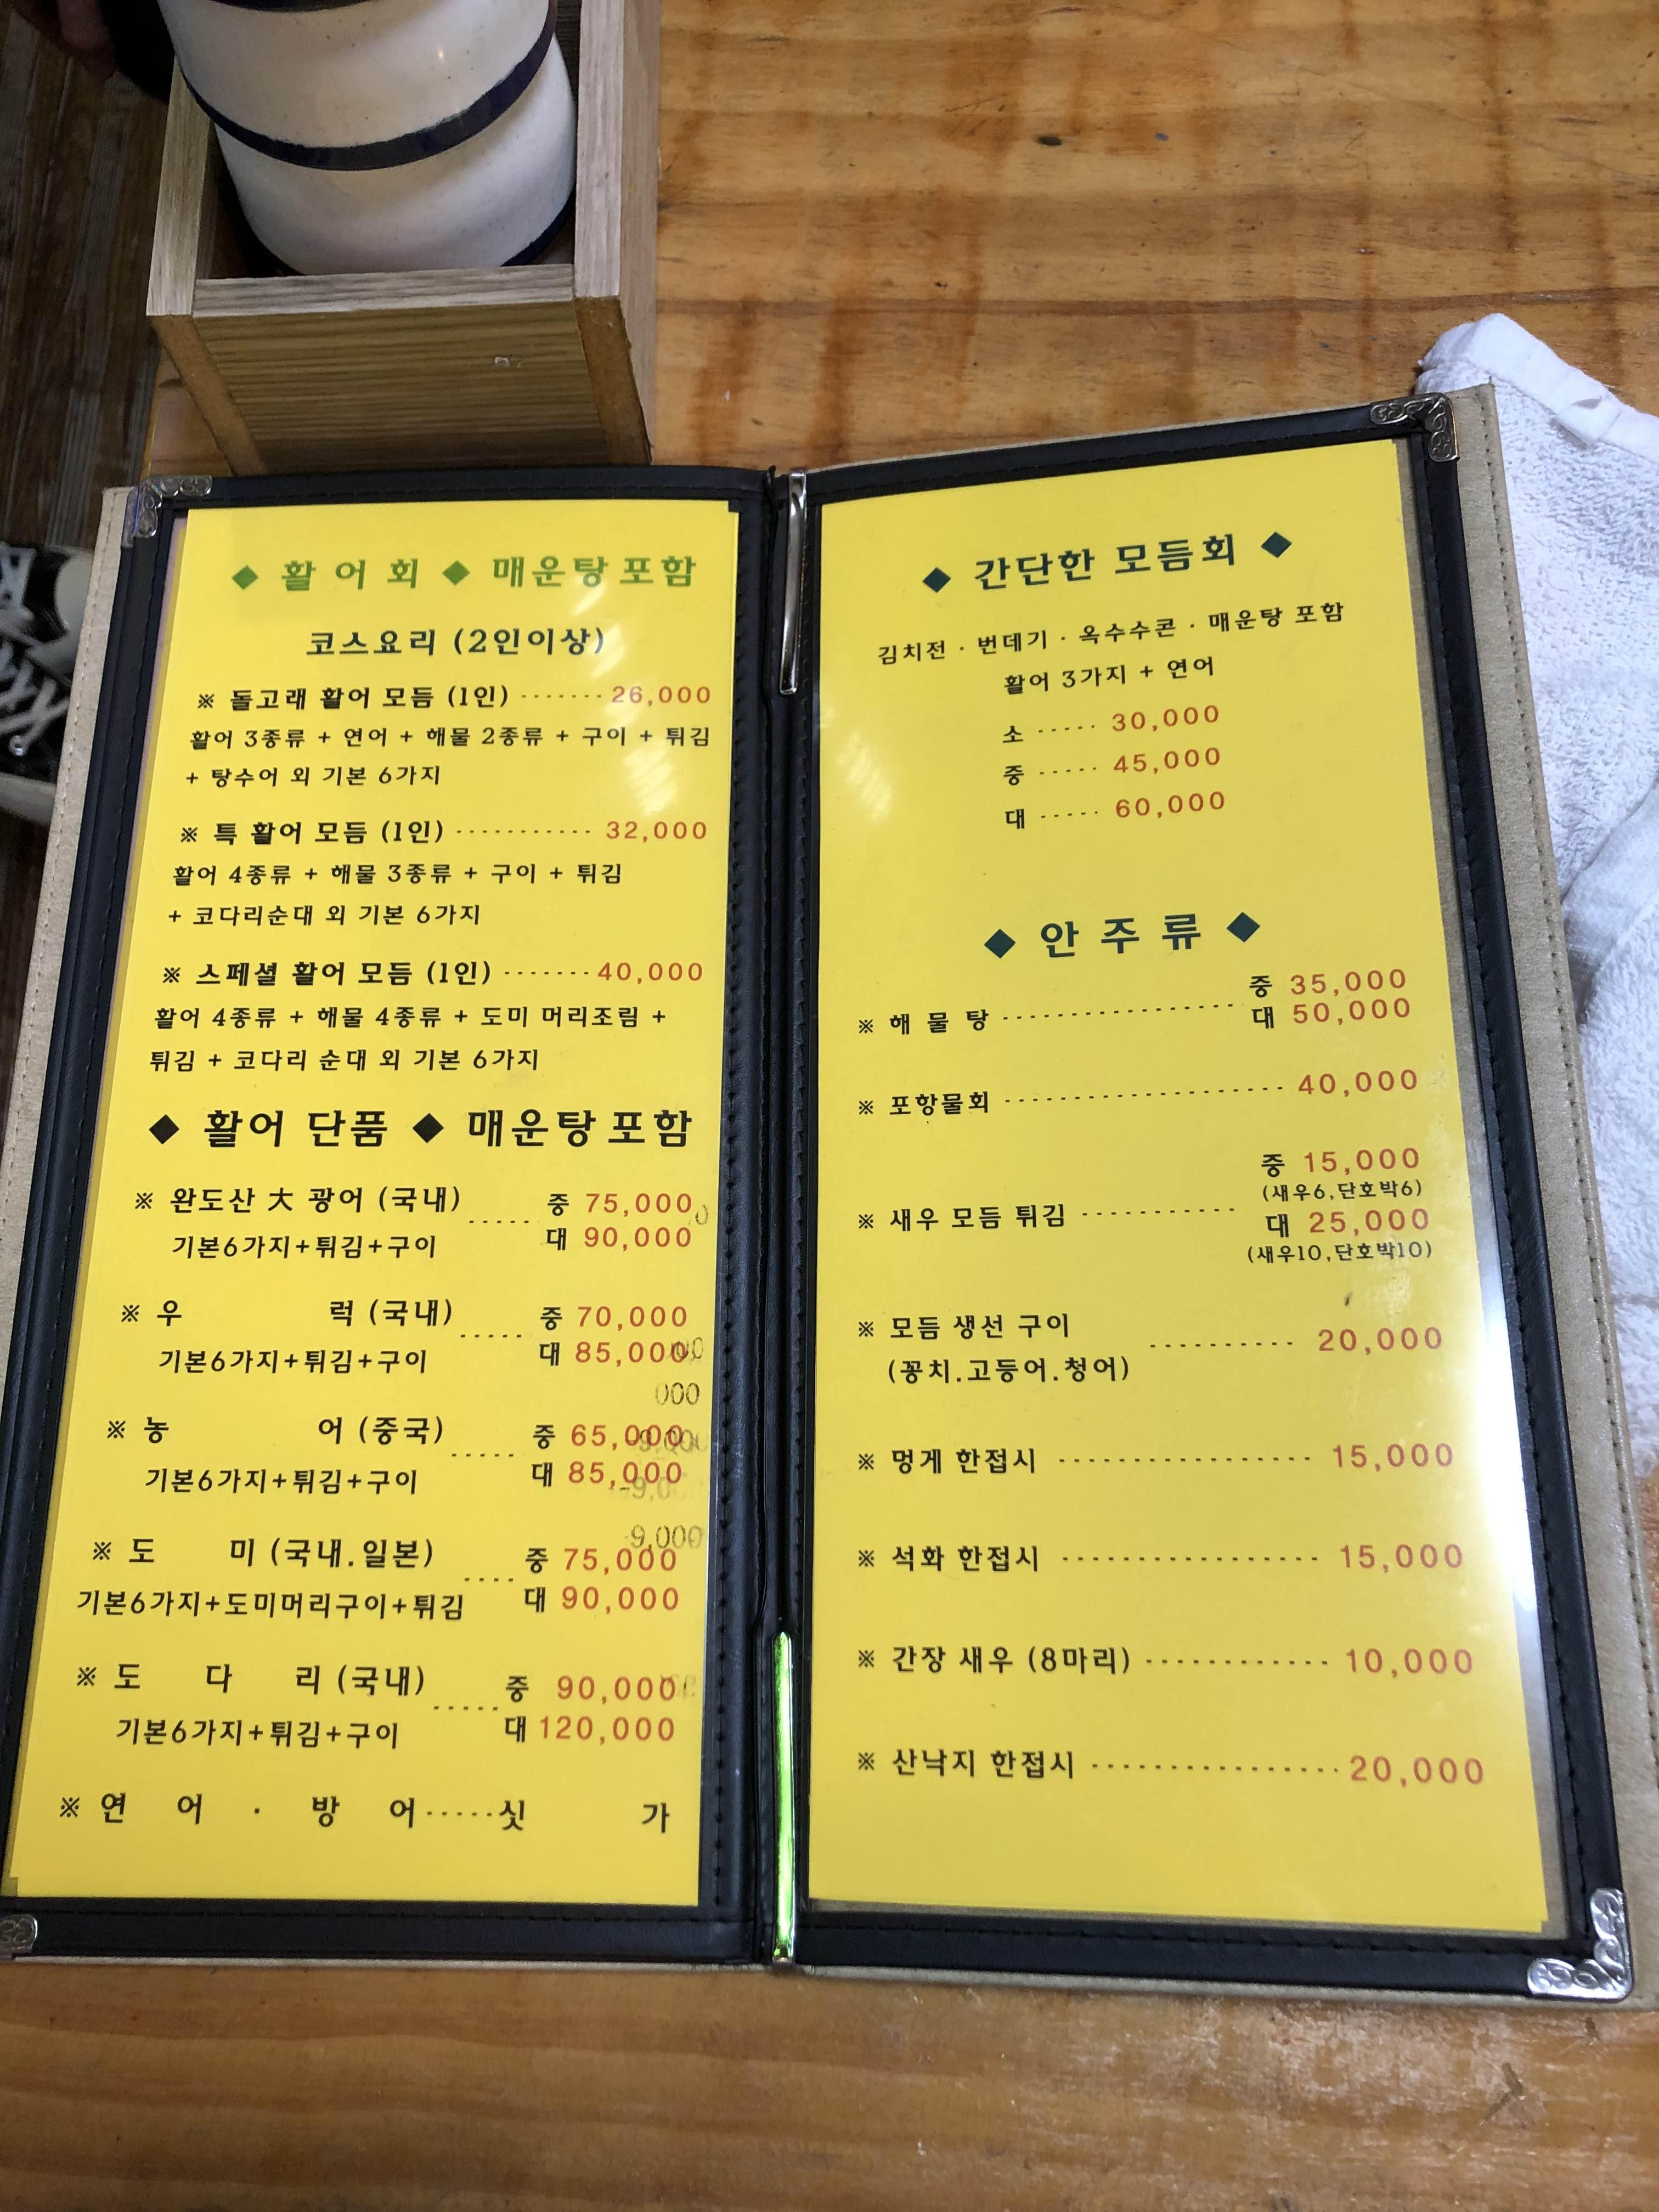 ◆ 활 어 회 ◆ 매운탕 포함
코스요리 (2인이상)
※ 돌고래 활어 모듬 (1인) ······· 26,000
활어 3종류 + 연어 + 해물 2종류 + 구이 + 튀김
+ 탕수어 외 기본 6가지
※ 특 활어 모듬 (1인) ··········· 32,000
활어 4종류 + 해물 3종류 + 구이 + 튀김
+ 코다리순대 외 기본 6가지
※ 스페셜 활어 모듬 (1인) ······· 40,000
활어 4종류 + 해물 4종류 + 도미 머리조림 +
튀김 + 코다리 순대 외 기본 6가지
◆ 활어 단품 ◆ 매운탕 포함
※ 완도산 大 광어 (국내) ····· 중 75,000
기본6가지+튀김+구이 대 90,000
※ 우 럭 (국내) ····· 중 70,000
기본6가지+튀김+구이 대 85,000
※ 농 어 (중국) ····· 중 65,000
기본6가지+튀김+구이 대 85,000
※ 도 미 (국내.일본) ···· 중 75,000
기본6가지+도미머리구이+튀김 대 90,000
※ 도 다 리 (국내) ····· 중 90,000
기본6가지+튀김+구이 대 120,000
※ 연 어 · 방 어 ····· 싯 가
◆ 간단한 모듬회 ◆
김치전 · 번데기 · 옥수수콘 · 매운탕 포함
활어 3가지 + 연어
소 ····· 30,000
중 ····· 45,000
대 ····· 60,000
◆ 안 주 류 ◆
※ 해 물 탕 ··················· 중 35,000
대 50,000
※ 포항물회 ······················ 40,000
중 15,000
(새우6,단호박6)
※ 새우 모듬 튀김 ············ 대 25,000
(새우10,단호박10)
※ 모듬 생선 구이 ·········· 20,000
(꽁치.고등어.청어)
※ 멍게 한접시 ················· 15,000
※ 석화 한접시 ················· 15,000
※ 간장 새우 (8마리) ············ 10,000
※ 산낙지 한접시 ················ 20,000